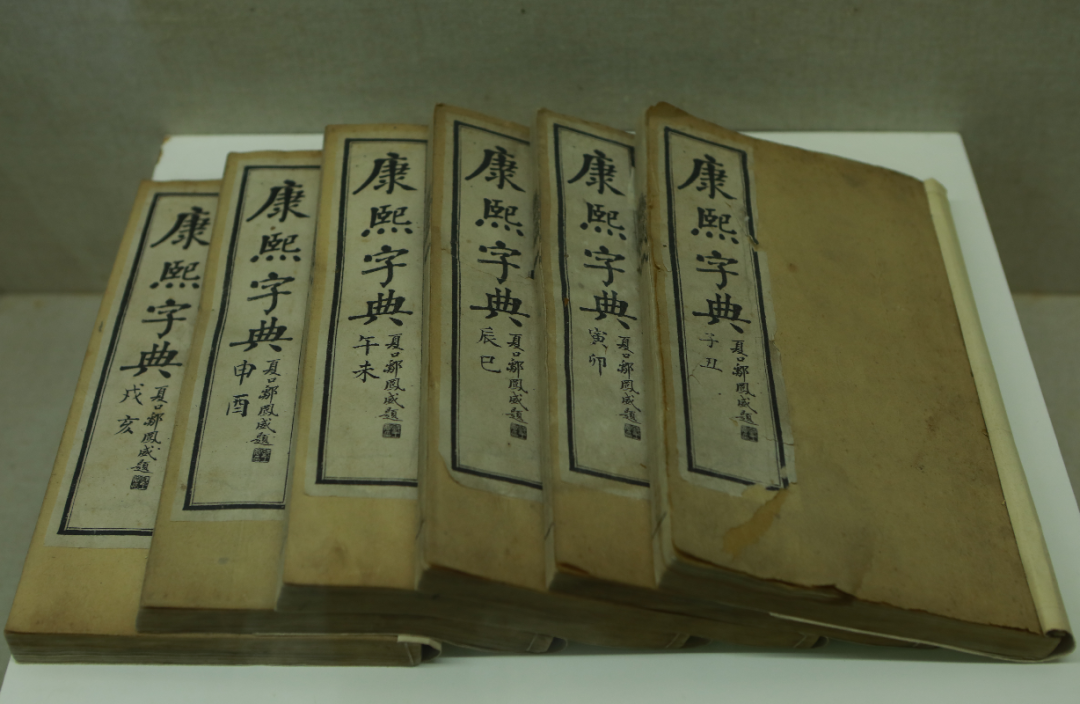 康熙字典
子丑
夏口鄒鳳題
康熙字典
寅卯
夏口鄒鳳題
康熙字典
辰巳
夏口鄒鳳題
康熙字典
午未
夏口鄒鳳題
康熙字典
申酉
夏口鄒鳳題
康熙字典
戌亥
夏口鄒鳳題